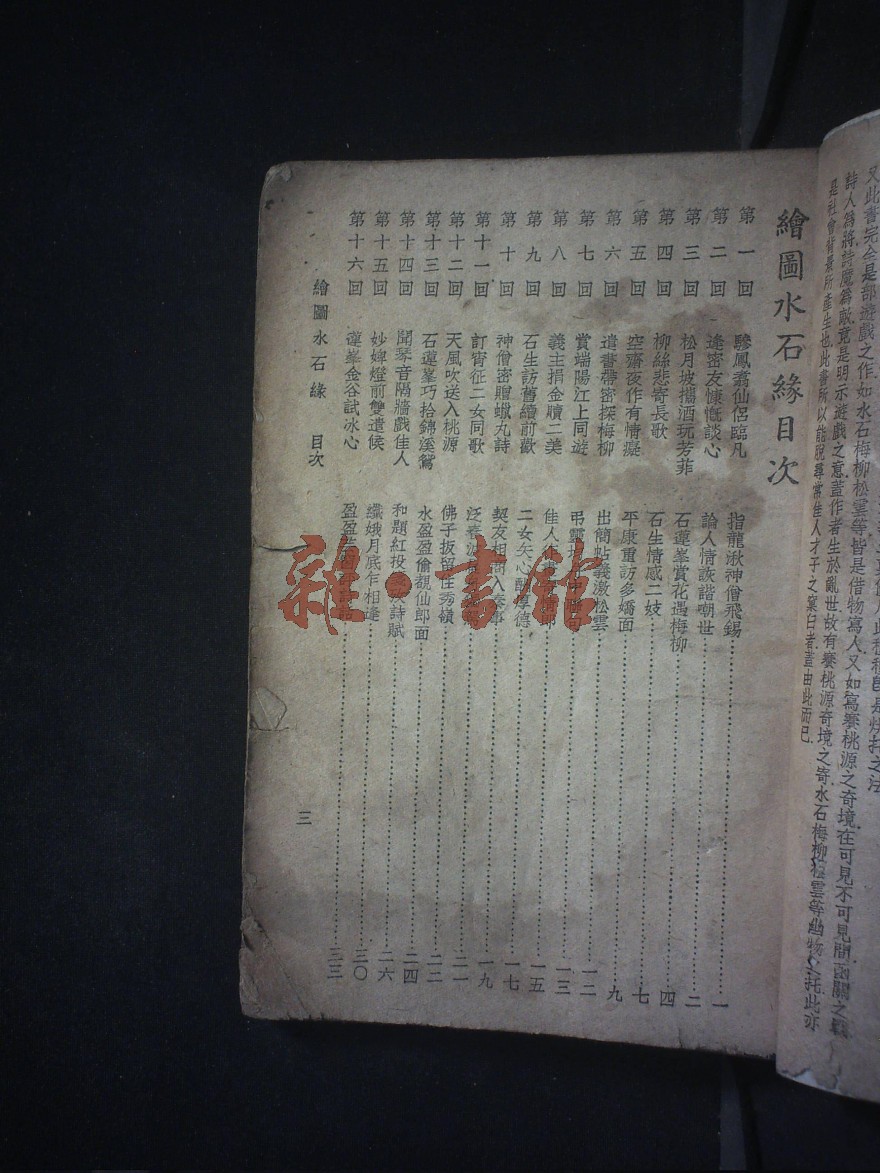 又此書完全是部遊戲之作如水石梅柳松雲等皆是借物寫人又如寫襲桃源之奇境在可見不可見間函關之
詩人爲將詩魔爲敵竟是明示遊戲之意蓋作者生於亂世故有襲桃源奇境之寄水石梅柳松雲等幽物之托此亦
是社會背景所產生也此書所以能脫尋常佳人才子之窠臼者蓋由此而已
繪圖水石緣目次
第一回 驂鳳翥仙侶臨凡 指龍湫神僧飛錫 一
第二回 逢密友慷慨談心 論人情詼諧嘲世 二
第三回 松月坡攜酒玩芳菲 石蓮峯賞花遇梅柳 四
第四回 柳絲悲寄長歌 石生情感二妓 七
第五回 空齋夜作有情癡 平康重訪多嬌面 九
第六回 遺書帶密探梅柳 出簡帖義激松雲 一二
第七回 賞端陽江上同遊 弔靈均 一三
第八回 義主捐金贖二美 佳人 一五
第九回 石生訪舊續前歡 二女矢心酬厚德 一七
第十回 神僧密贈蠟丸詩 契友相 奏事 一九
第十一回 訂宵征二女同歌 泛春 二一
第十二回 天風吹送入桃源 佛子扳留住秀嶺 二二
第十三回 石蓮峯巧拾錦溪鴛 水盈盈偷覩仙郎面 二四
第十四回 聞琴音隔牆戲佳人 和題紅投 詩賦 二六
第十五回 妙婢燈前雙遣候 纖娥月底乍相逢 三〇
第十六回 蓮峯金谷試冰心 盈盈 三三
繪圖水石緣 目次
三
雜·書館